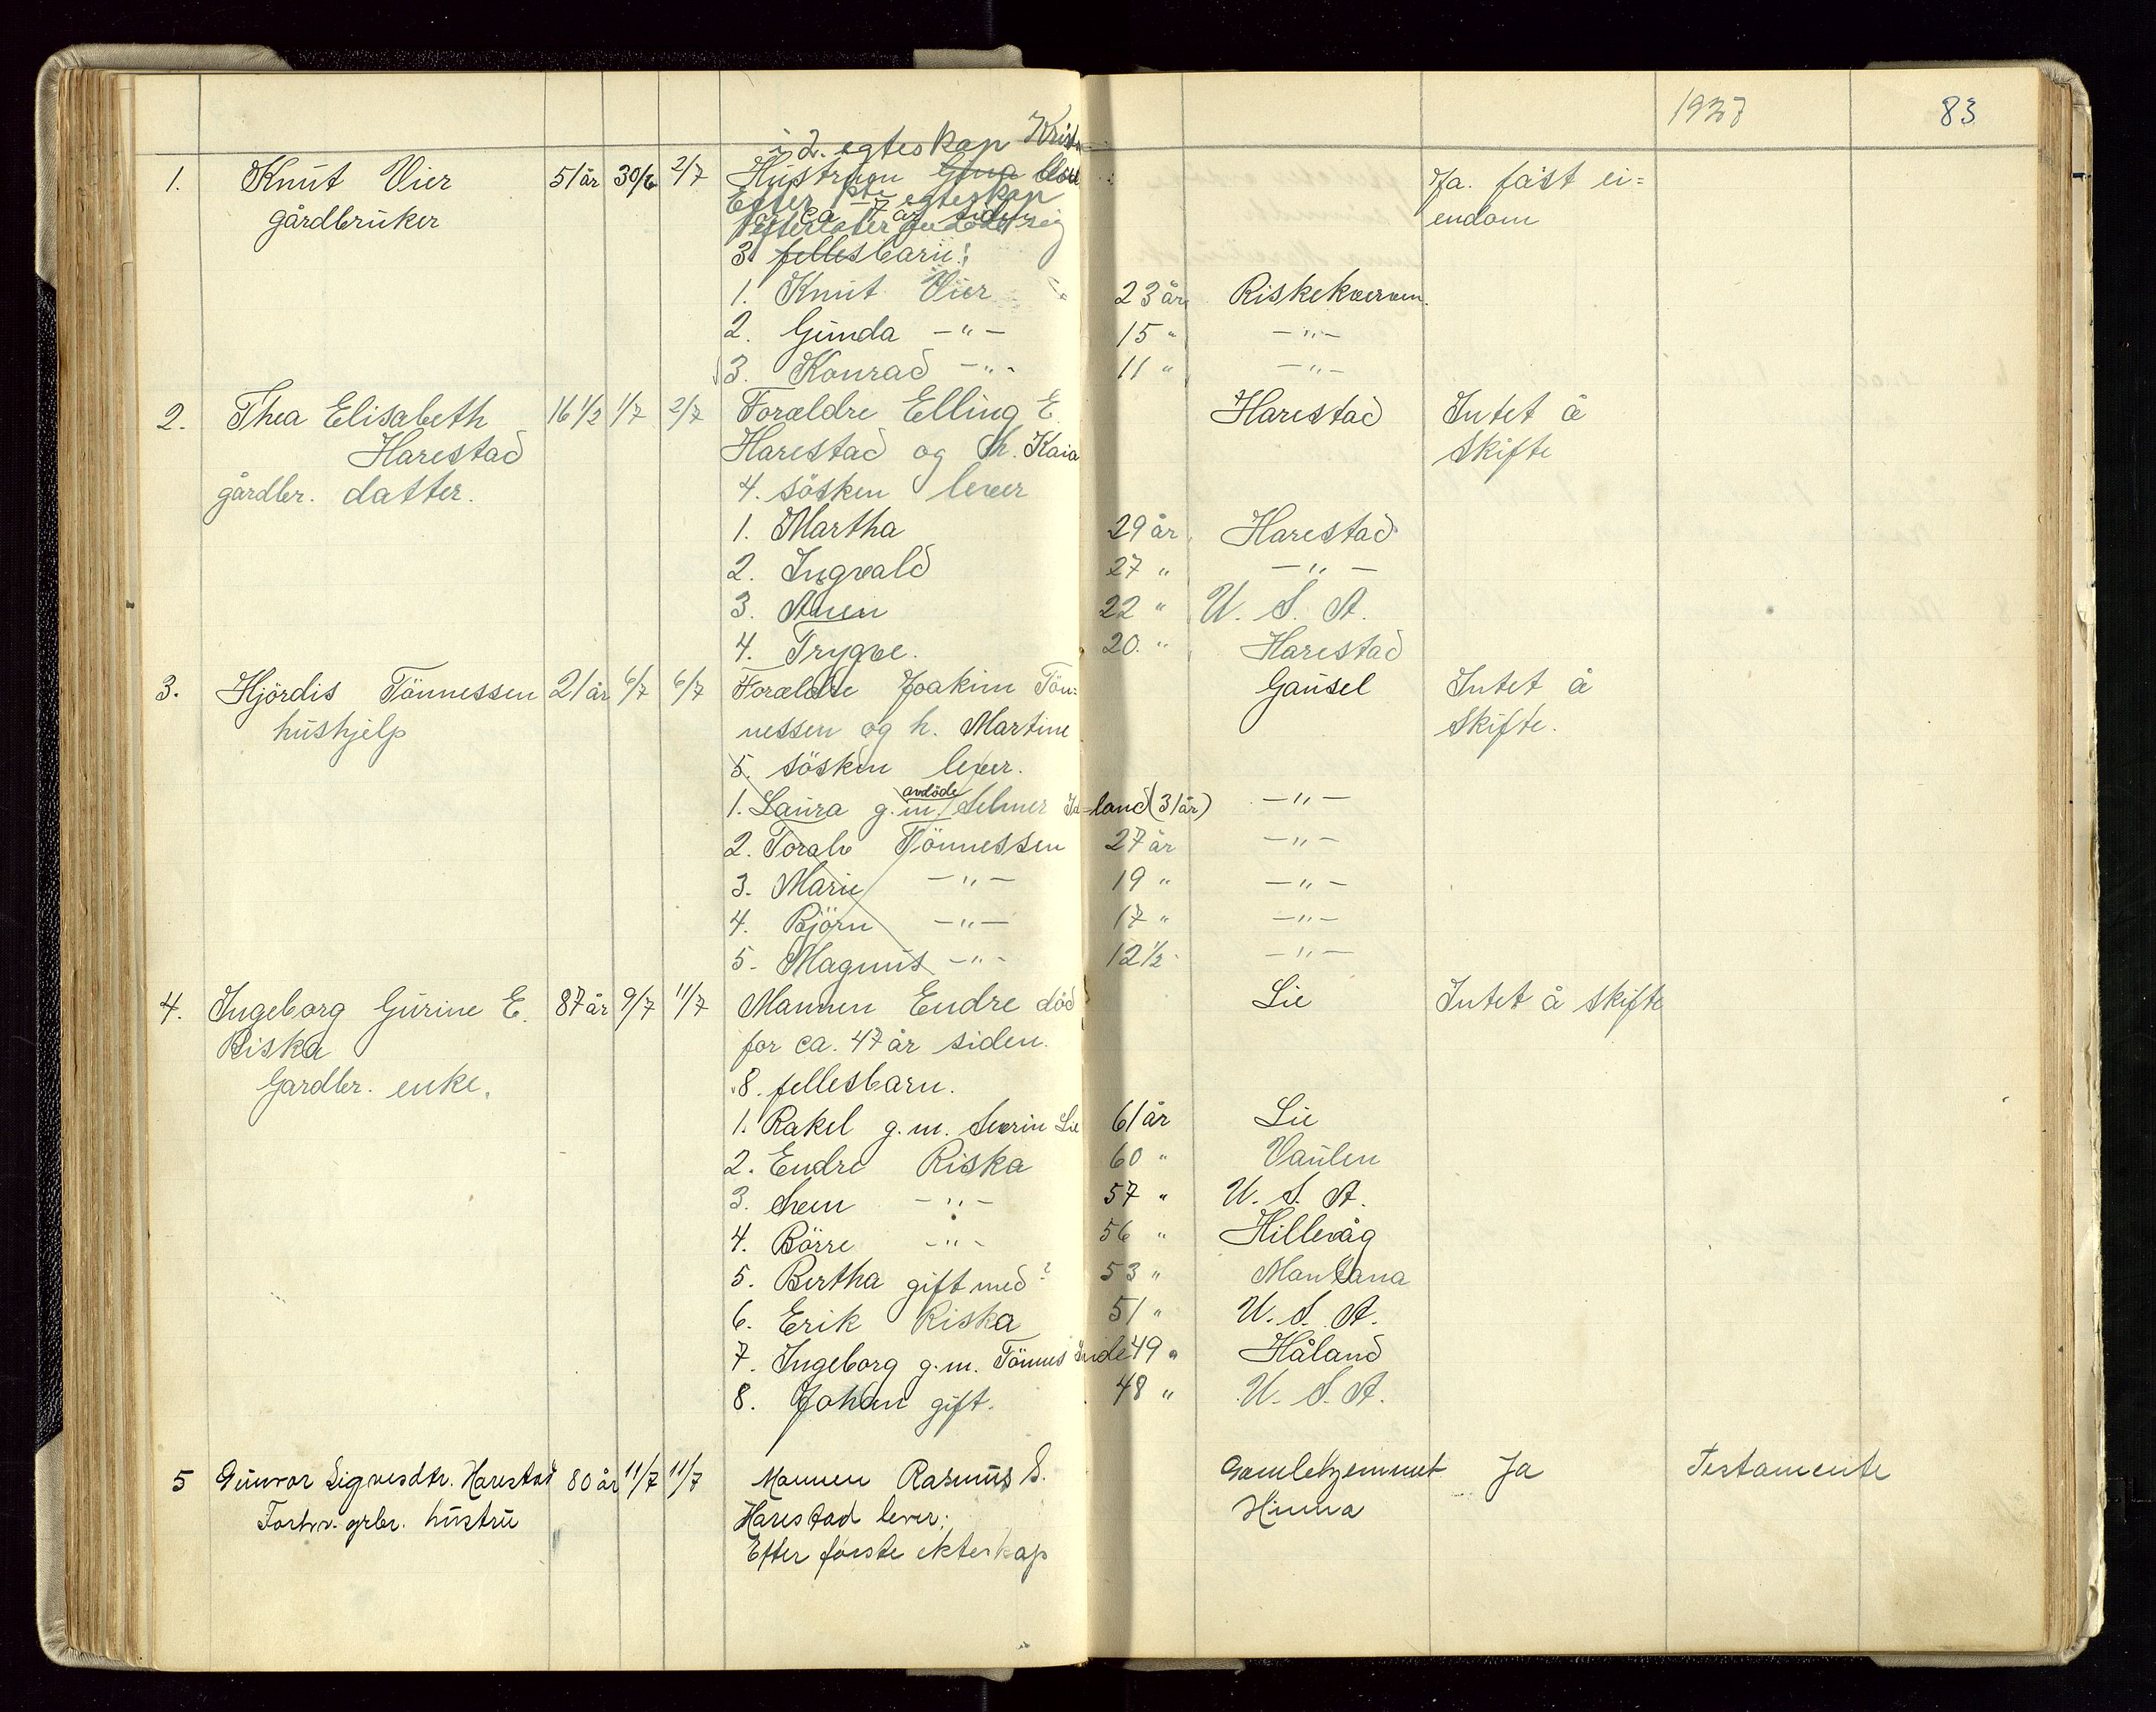 1927 83
i 2. egteskap Krist
1. Knut Vier 51 år 30/6 2/7 Hustruen Gina død Ja. fast ei=
Efter 1ste egteskap
gårdbruker for ca 7 år siden endom
efterlater sig
3 fellesbarn:
1. Knut Vier 23 år Riskekværnen.
2. Gunda —"— 15 " —"—
3. Konrad —"- 11 " —"—
2. Thea Elisabeth 16 1/2 1/7 2/7 Forældre Elling E. Harestad Intet å
Harestad Harestad og h. Kaia skifte
gårdbr. datter. 4. søsken lever
1. Martha 29 år Harestad
2. Ingvald 27 " —"—
3. 22 " U. S. A.
4. Trygve. 20. " Harestad
3. Hjördis Tönnessen 21 år 6/7 6/7 Forældre Joakim Tön= Gausel Intet å
hushjelp nessen og h. Martine skifte.
5. søsken lever.
avdöde
1. Laura g.m. Selmer -land (31 år) —"—
2. Toralv Tönnessen 27 år —"—
3. Marie —"— 19 " —"—
4. Björn —"— 17 " —"—
5. Magnus —"- 12 1/2 —"—
4. Ingeborg Gurine E. 87 år 9/7 11/7 Mannen Endre död Lie Intet å skifte
Riska for ca. 47 år siden.
Gardbr. enke. 8. fellesbarn.
1. Rakel g.m. Severin Lie 61 år Lie
2. Endre Riska 60 " Vaulen
3. Sven —"— 57 " U. S. A.
4. Börre -"- 56 " Hillevåg
5. Bertha gift med? 53 " Mantana
6. Erik Riska 51 " U. S. A.
7. Ingeborg g.m. Tönnes 49 " Håland
8. Johan gift. 48 " U. S. A.
5 Gunvor Sigvesdtr. Harestad 80 år 11/7 11/7 Mannen Rasmus S. Gamlehjemmet Ja Testamente
Forhv. grbr. hustru Harestad lever; Hinna
Efter første ekteskap